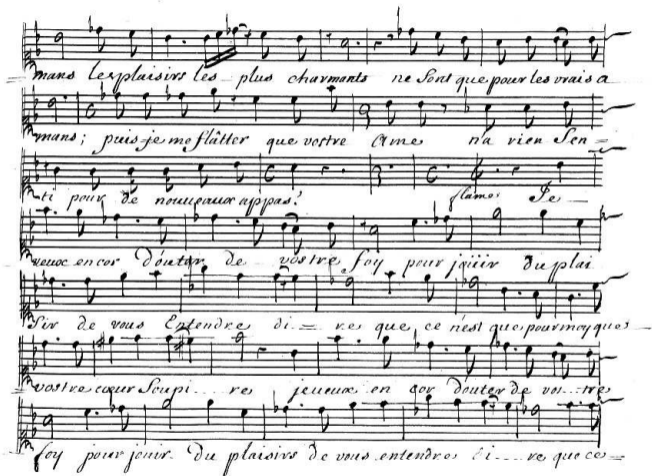 mans les plaisirs les plus charmants ne sont que pour les vrais a
mans; puis-je me flâtter que vostre Ame n'a rien Sen=
ti pour de nouveaux appas? flame. Je
veux encor douter de vostre foy pour joüir du plai
sir de vous Entendre di=re que ce n'est que pour moy que
vostre cœur Soupi...re; je veux en cor douter de vos...tre
foy pour jouir du plaisirs de vous entendre di...re que ce=